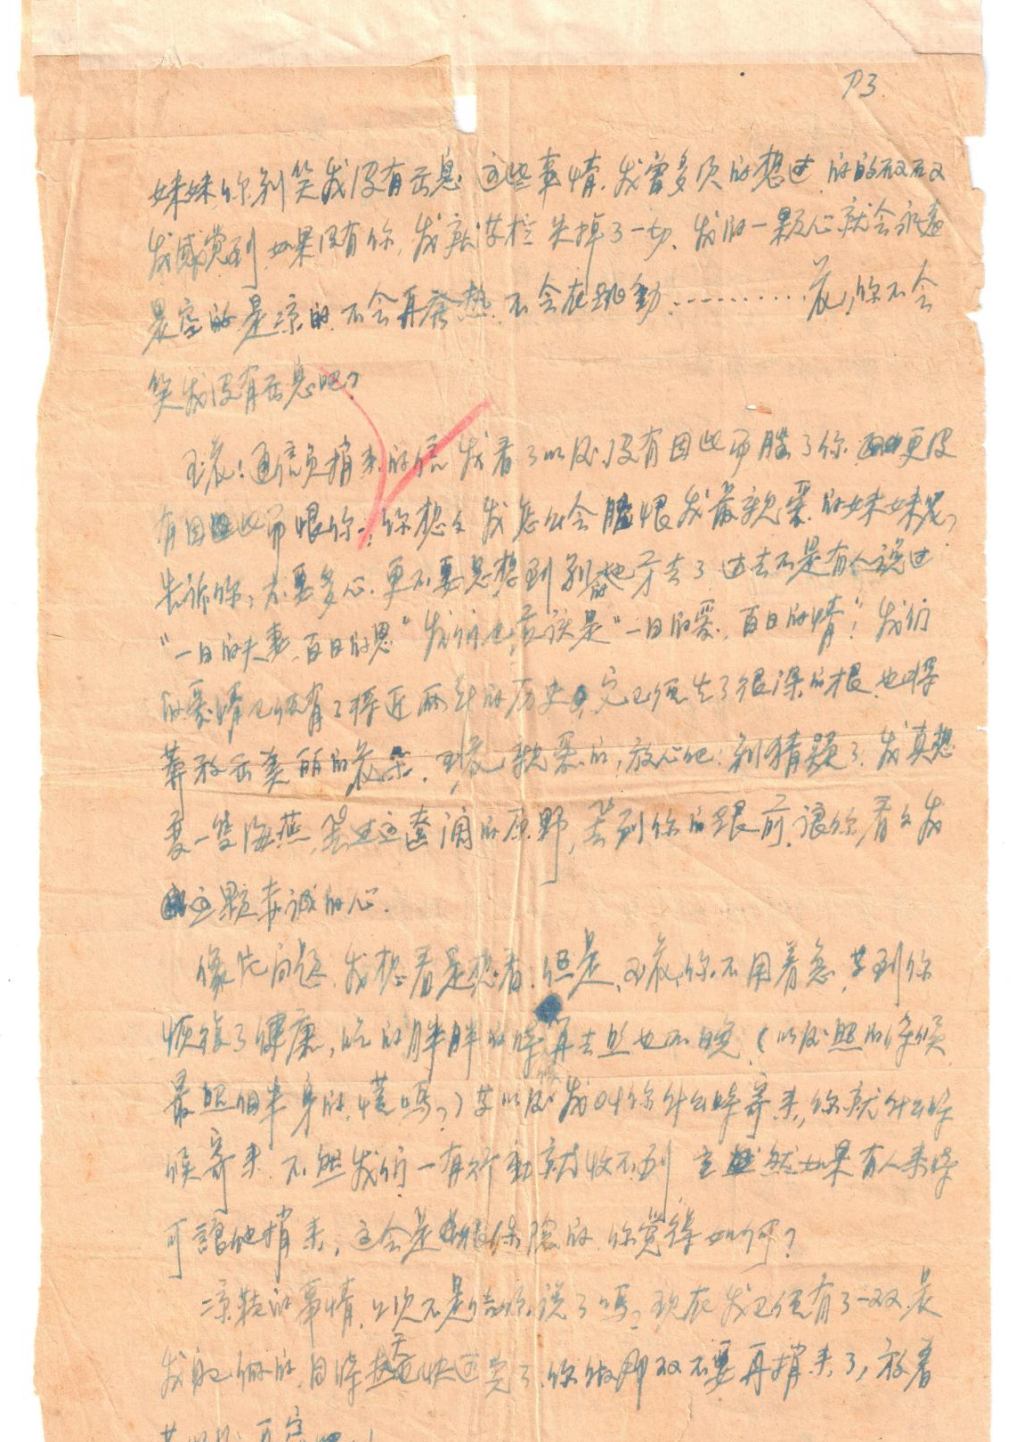 P3.
妹妹你别笑我没有出息 这些事情,我曾多次的想过,的的双双
我感觉到,如果没有你,我就等於失掉了一切、我的一颗心就会永远
是空的是凉的,不会再發热,不会在跳動…………花,你不会
笑我没有出息吧?
玉花!通信员捎来的信 我看了以及没有因此而瞒了你,更没
有因此而恨你,你想么 我怎么会 恨我最親愛的妹妹呢?
告诉你,不要多心,更不要思想到别的地方去了 过去不是有人说过
“一日的夫妻,百日的恩”我们也应该是“一日的愛、百日的情”!我们
的愛情已经有了将近两年的历史,它已经生了很深的根,也将
開放出美丽的花朵,玉花,親愛的,放心吧:别猜疑了,我真想
变一隻海燕,飞过这遼濶的原野,飞到你的跟前,讓你看么我
这颗赤诚的心.
像片问题,我想看是想看,但是,玉花,你不用着急,等到你
恢復了健康,吃的胖胖的時再去照也不晚,(以及照的時候
最照個半身的,懂嗎?)等以及我叫你什么時寄来,你就什么時
候寄来,不然我们一有行動就收不到 当然如果有人来時
可讓他捎来,这会是很保险的,你覺得如何?
凉鞋的事情,上次不是告你说了嗎?现在我已经有了一双,是
我自己做的,目降热天也快过完了,你做那双不要再捎来了,放着